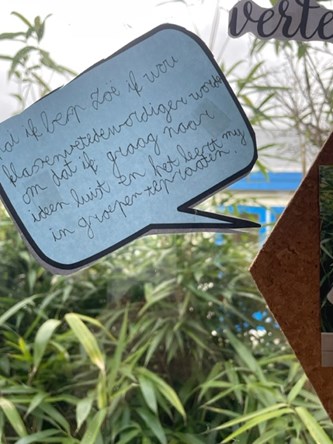 verte
d ik ben Zoë ik wou
klassenvertedewordiger worde
om dat ik graag naar
ideen luist En het leert my
in groepen te praaten.